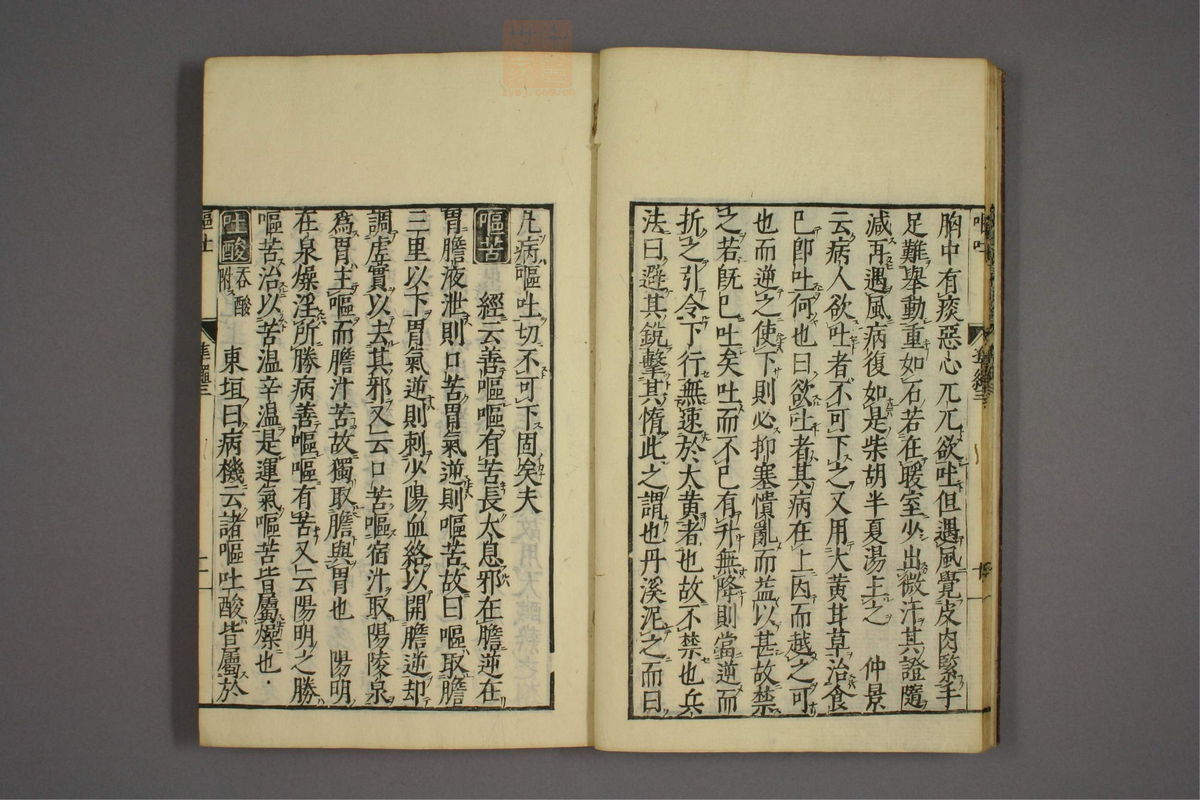 胸中有痰惡心兀兀欲吐但遇風覺皮肉緊手
足難舉動重如石若在暖室少出微汗其證隨
減再遇風病復如是柴胡半夏湯上之　仲景
云病人欲吐者不可下之又用大黃甘草治食
已即吐何也曰欲吐者其病在上因而越之可
也而逆之使下則必抑塞憒亂而益以甚故禁
之若既已吐矣吐而不已有升無降則當逆而
折之引令下行無速於大黃者也故不禁也兵
法曰避其銳擊其惰此之謂也丹溪泥之而曰
凡病嘔吐切不可下固矣夫
嘔苦　經云善嘔嘔有苦長太息邪在膽逆在
胃膽液泄則口苦胃氣逆則嘔苦故曰嘔取膽
三里以下胃氣逆則刺少陽血絡以閉膽逆却
調虛實以去其邪又云口苦嘔宿汁取陽陵泉
為胃主嘔而膽汁苦故獨取膽與胃也　陽明
在泉燥淫所勝病善嘔嘔有苦又云陽明之勝
嘔苦治以苦溫辛溫是運氣嘔苦皆屬燥也
吐酸　吞酸附　東垣曰病機云諸嘔吐酸皆屬於
嘔吐
準繩三